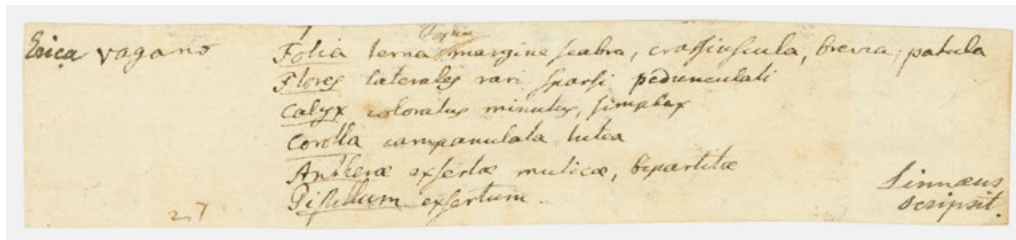 Erica vagans Folia terna margine scabra, crassiuscula, brevia, patula
Flores laterales rari sparsi pedunculati
Calyx coloratus minutus, simplex
Corolla campanulata lutea
Antheræ exsertæ muticæ, bipartitæ
Pistillum exsertum.
Linnæus
scripsit.
27